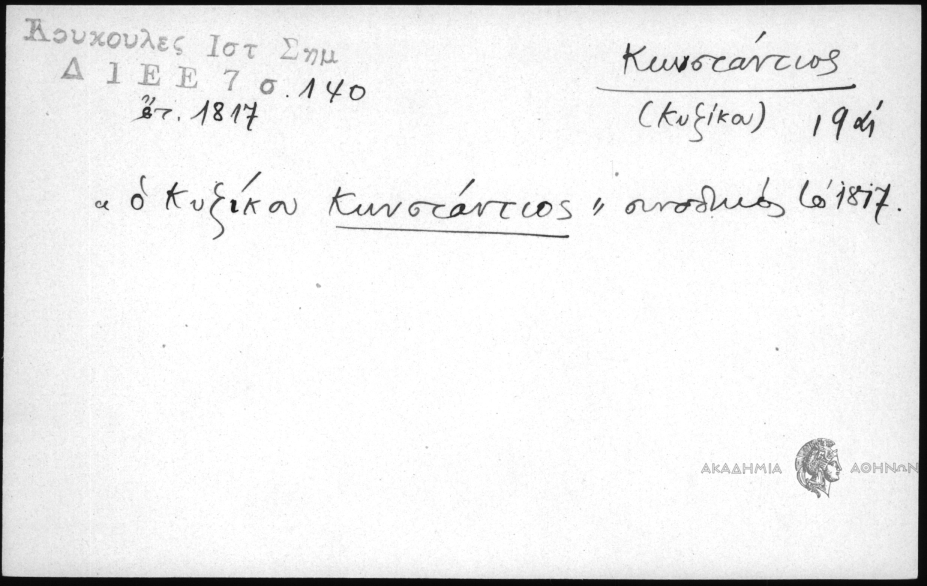 Κουκουλες Ιστ Σημ
Δ Ι Ε Ε 7 σ. 140
ἔτ. 1817
Κωνστάντιος
(Κυζίκου) 19 αἰ
« ὁ Κυζίκου Κωνστάντιος » συνοδικός 1817.
ΑΚΑΔΗΜΙΑ ΑΘΗΝΩΝ